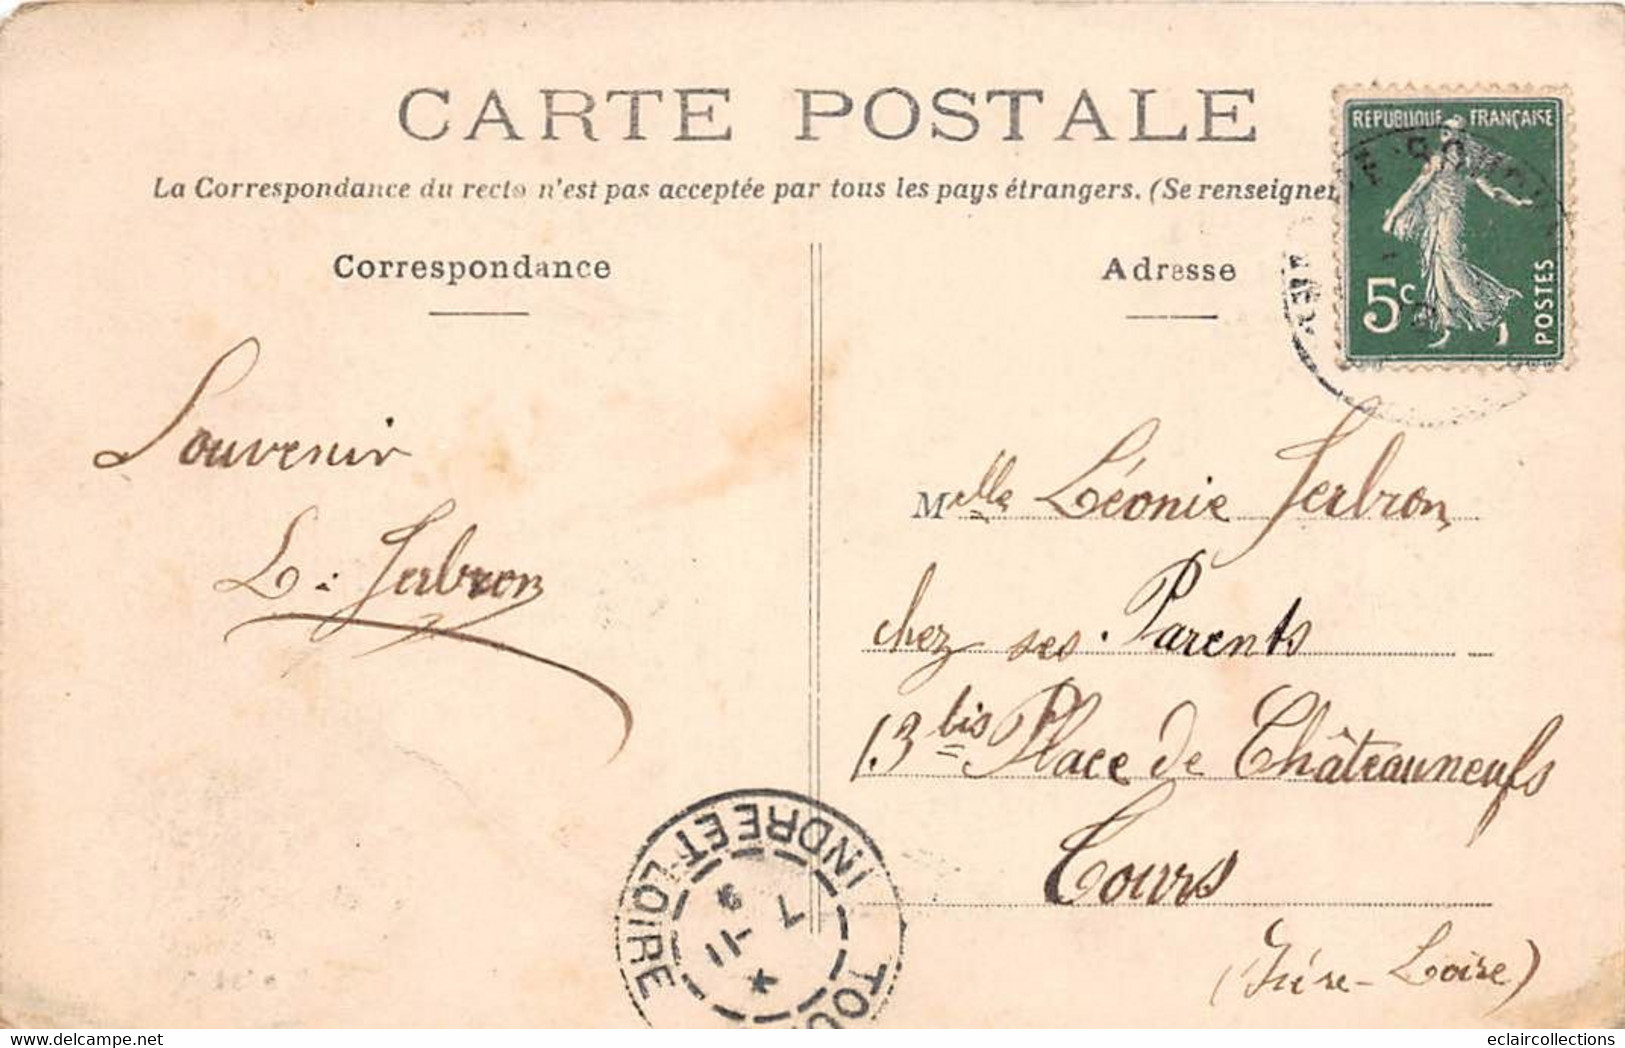 CARTE POSTALE
La Correspondance du recto n'est pas acceptée par tous les pays étrangers. (Se renseigner
REPUBLIQUE FRANÇAISE
5c
POSTES
Correspondance
Adresse
Souvenir
L. Jerbron
Melle Léonie Jerbron
chez ses Parents
13 bis Place de Châteauneufs
Tours
INDRE ET LOIRE
TOU
7
11
9
delcampe.net
eclaircollections